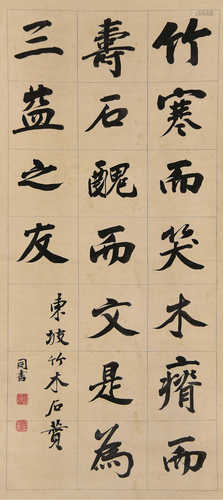 竹寒而笑木瘠而
壽石醜而文是為
三益之友
東坡竹木石贊
同書